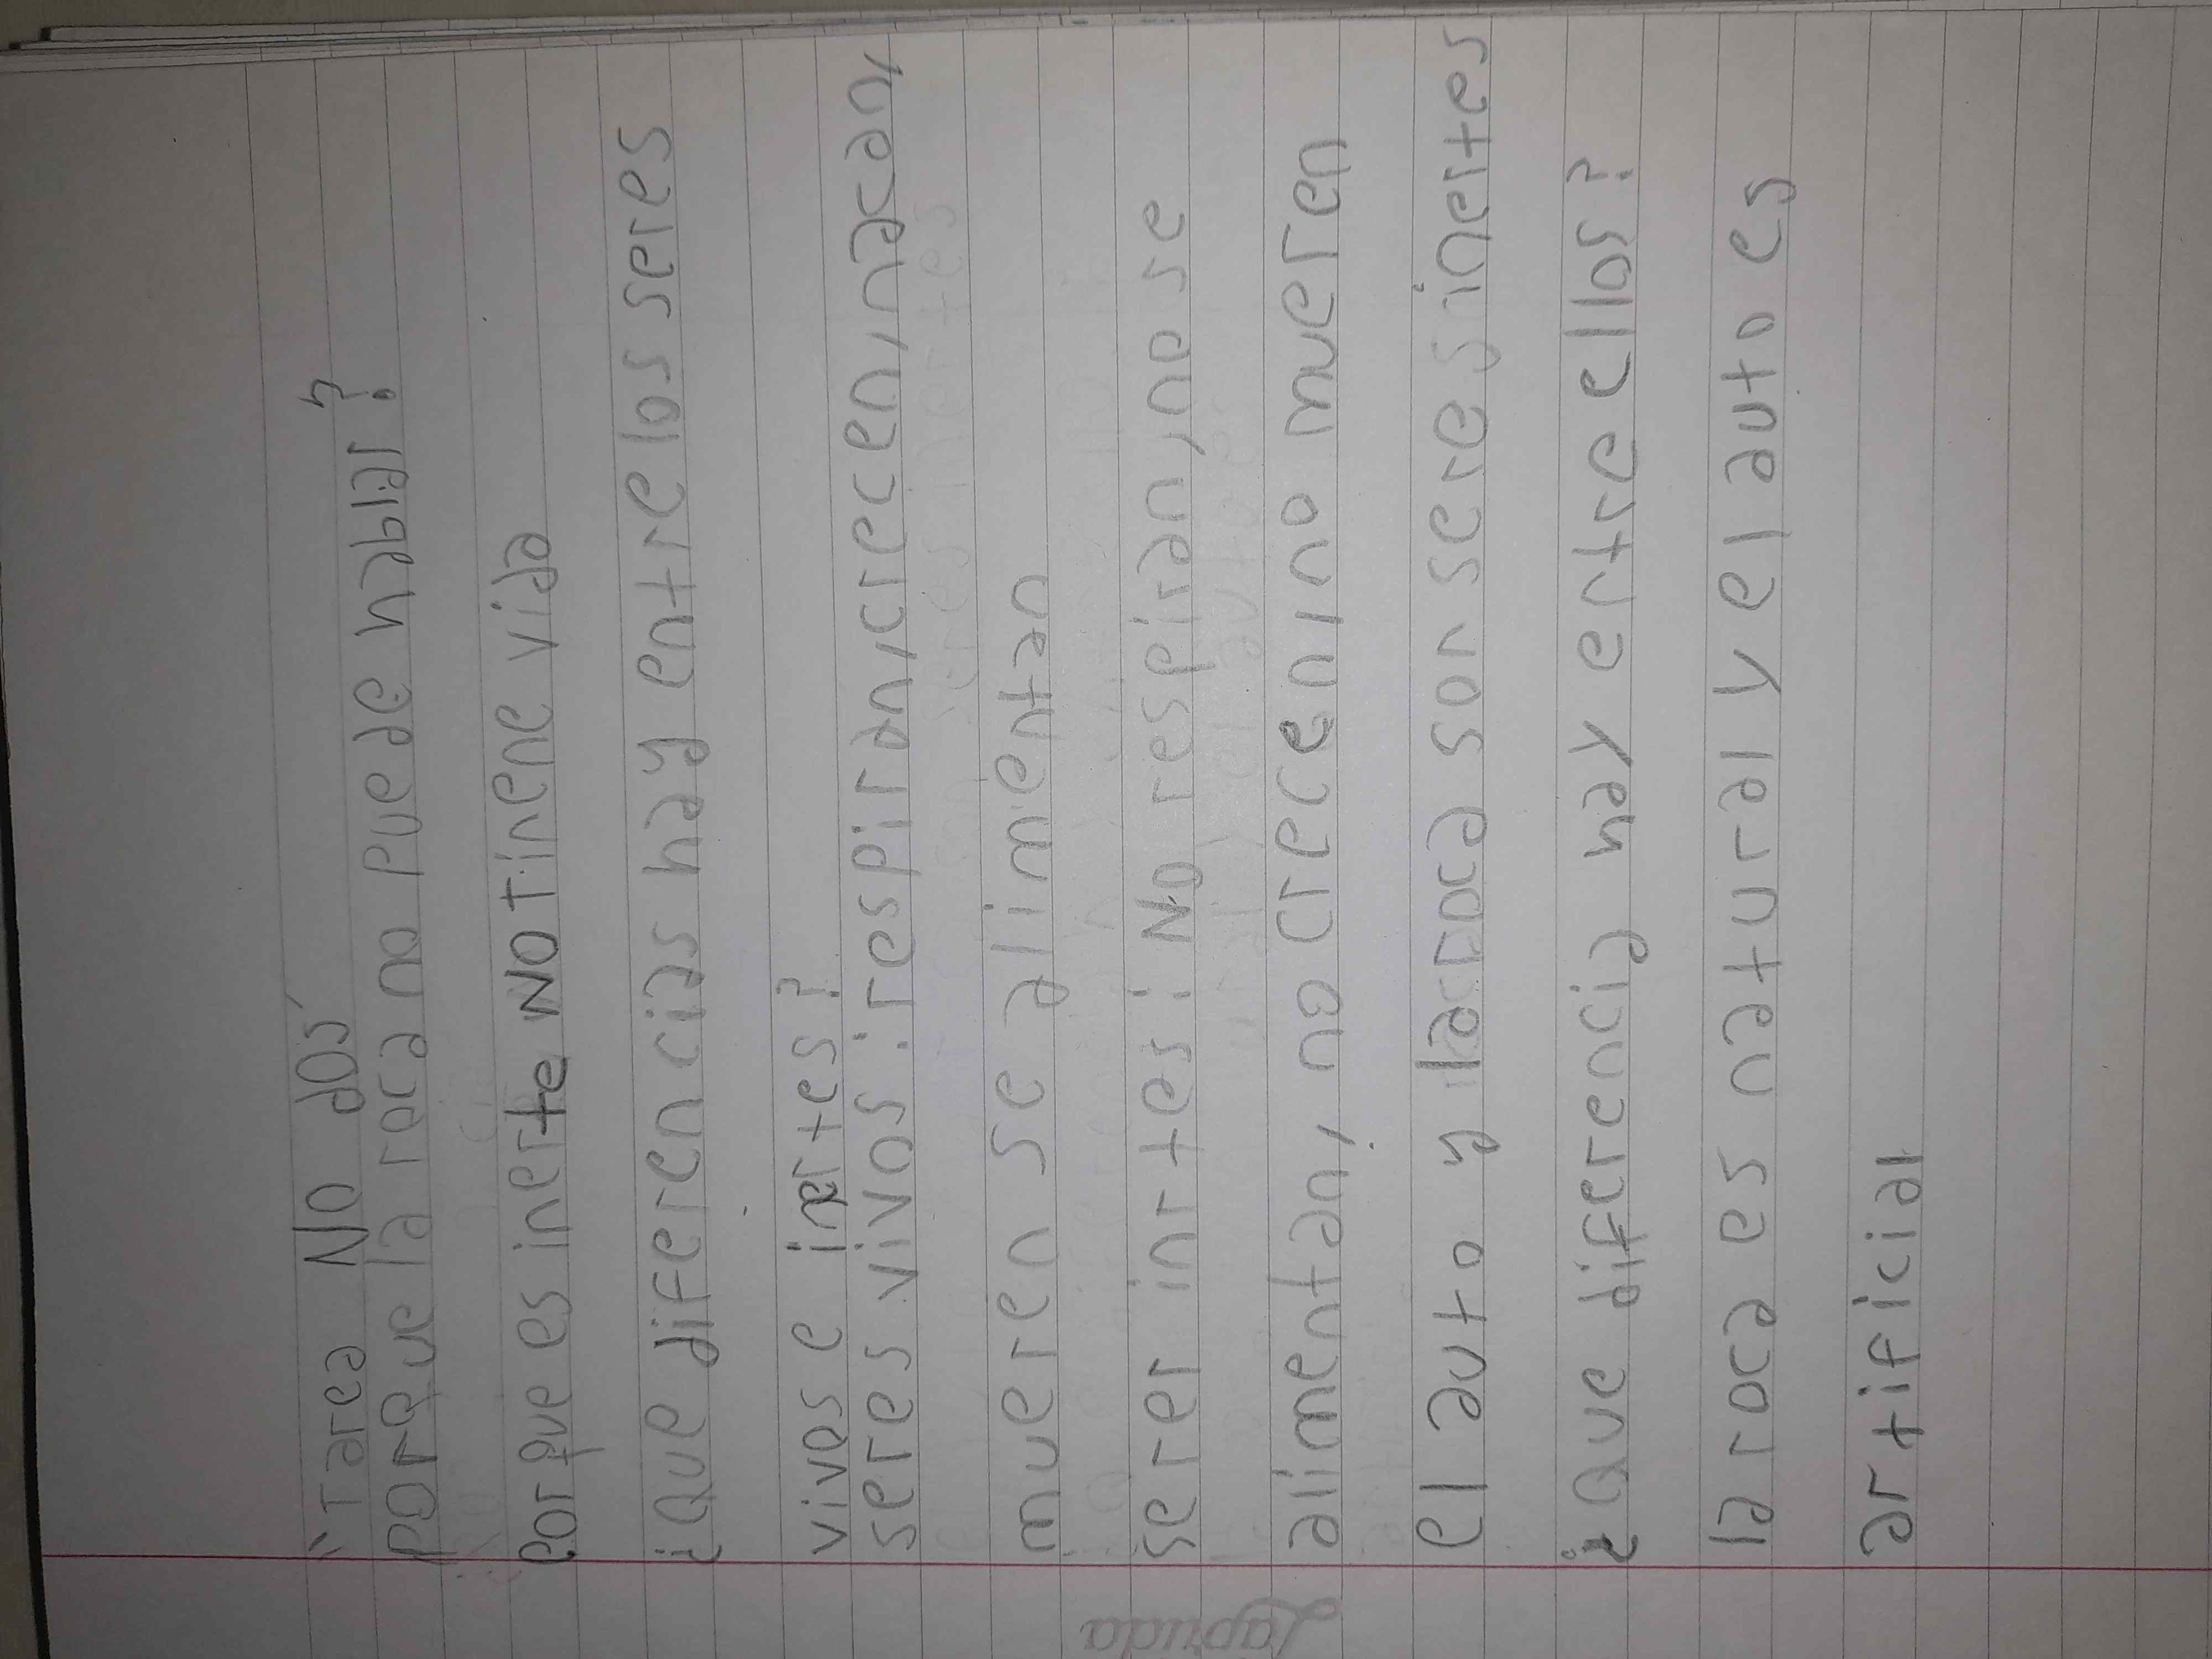 "Tarea No dos"
porque la roca no puede hablar?
Porque es inerte NO Tinene vida
¿Que diferencias hay entre los seres
vivos e inertes?
seres vivos: respiran, crecen, nacan,
mueren se alimentan
serer intes: No respiran, no se
alimentan, no crecen, no mueren
El auto y la roca son seres inertes
¿Que diferencia hay entre ellos?
la roca es natural y el auto es
artificial
Lapuda